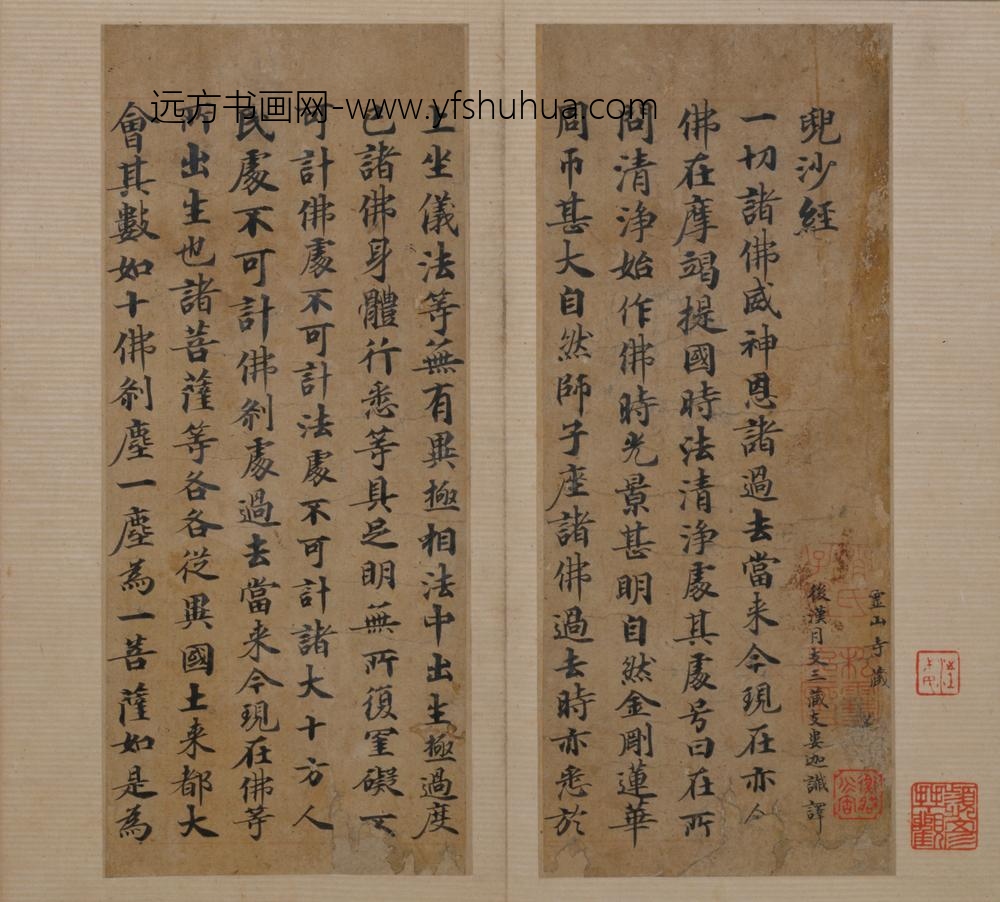 远方书画网-www.yfshuhua.com
兜沙經
靈山寺藏
後漢月支三藏支婁迦讖譯
一切諸佛威神恩諸過去當来今現在亦尒
佛在摩竭提國時法清淨處其處号曰在所
問清淨始作佛時光景甚明自然金剛蓮華
周帀甚大自然師子座諸佛過去時亦悉於
上坐儀法等無有異極相法中出生極過度
已諸佛身體行悉等具足明無所復罣礙不
可計佛處不可計法處不可計諸大十方人
民處不可計佛剎處過去當来今現在佛等
所出生也諸菩薩等各各從異國土来都大
會其數如十佛剎塵一塵為一菩薩如是為